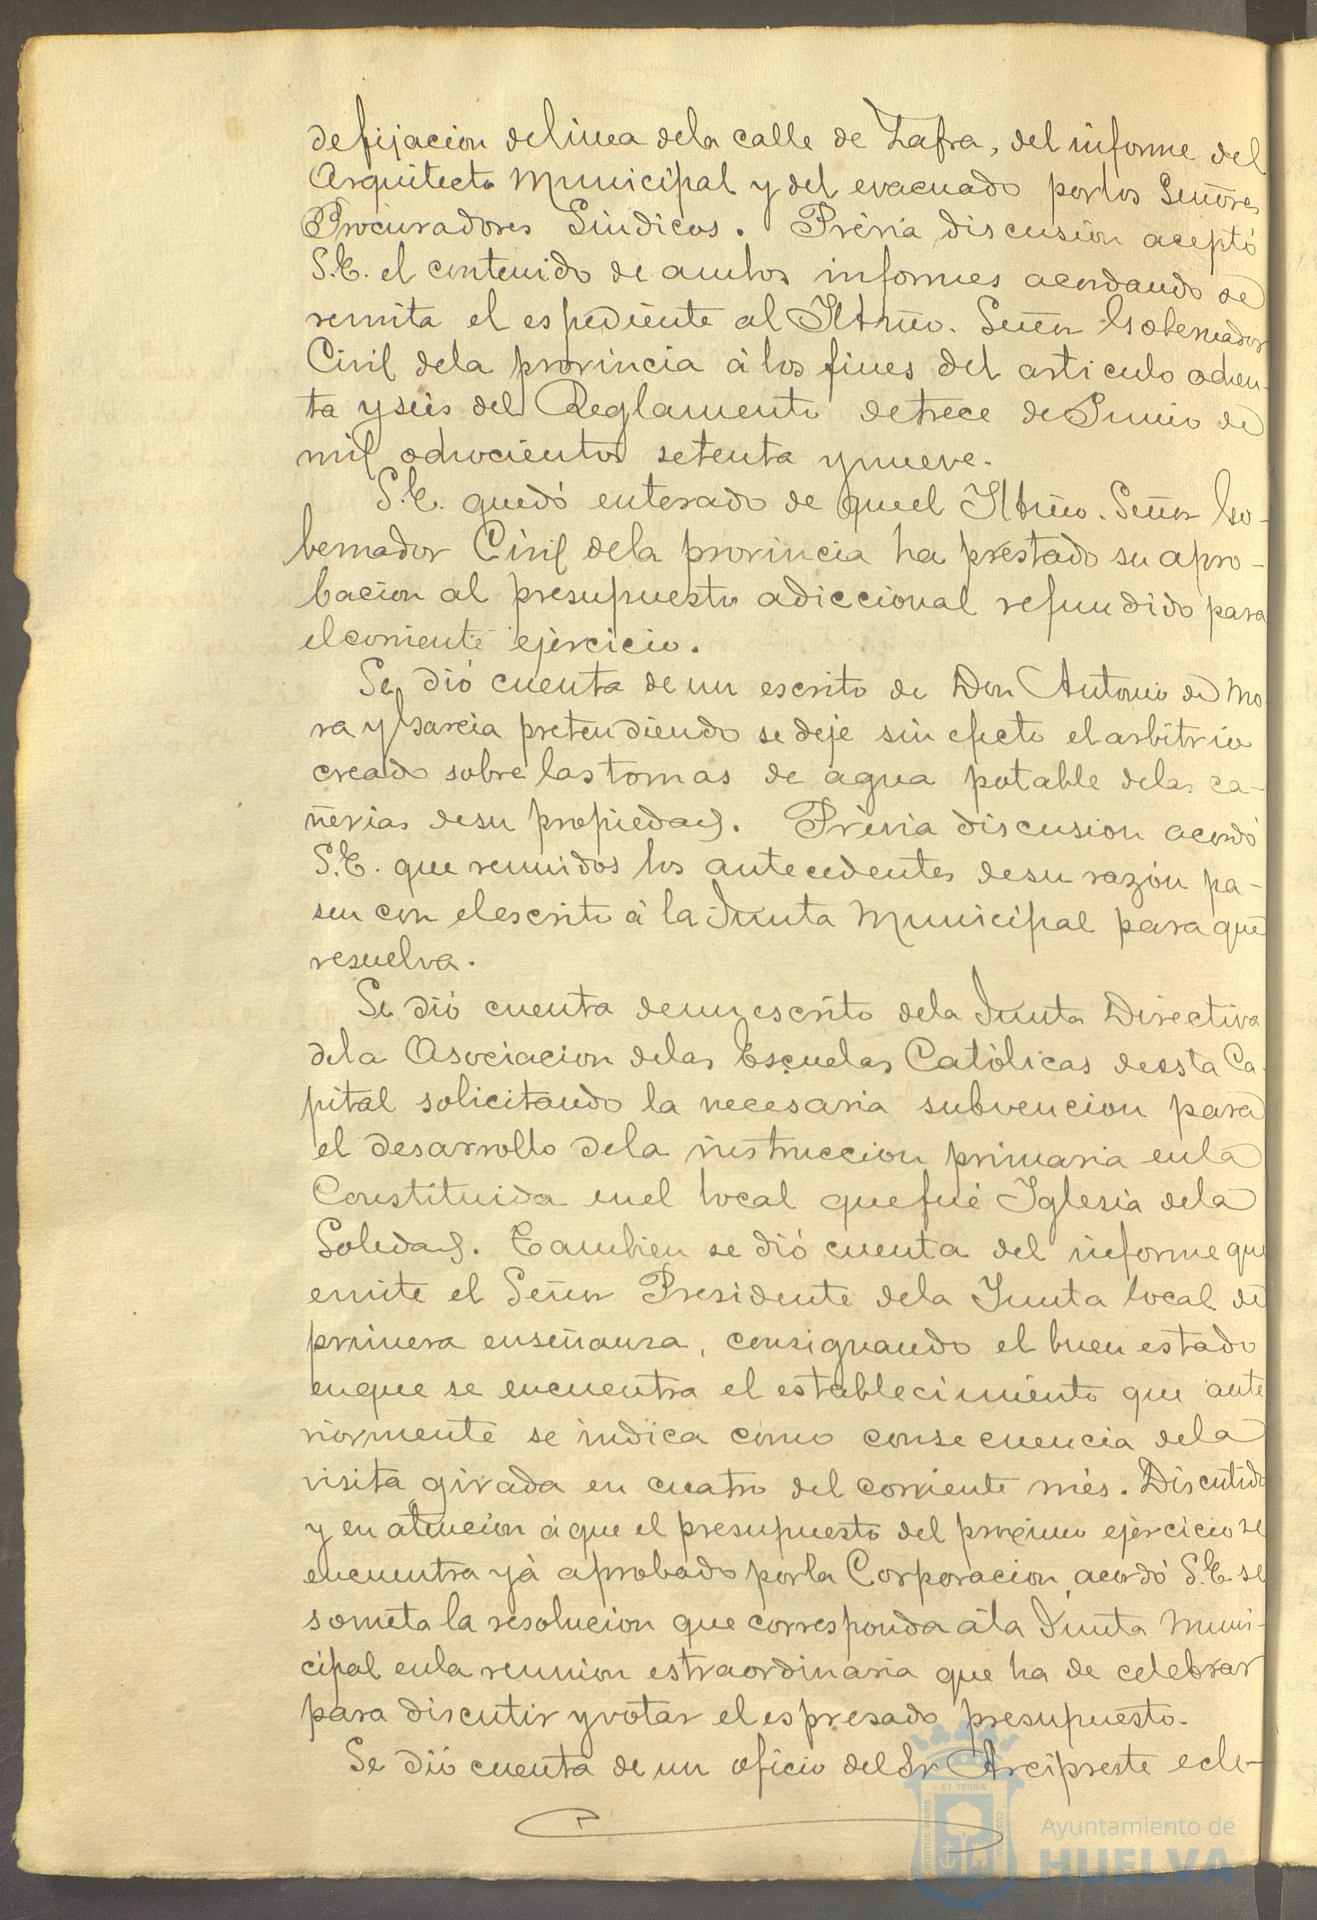 de fijacion de linea dela calle de Zafra, del informe del
Arquitecto Municipal y del evacuado por los Señores
Procuradores Síndicos. Prévia discusion aceptó
S.E. el contenido de ambos informes acordando se
remita el espediente al Iltmo. Señor Gobernador
Civil dela provincia á los fines del articulo ochen-
ta y seis del Reglamento de trece de Junio de
mil ochocientos setenta y nueve.
S.E. quedó enterado de que el Iltmo. Señor Go-
bernador Civil dela provincia ha prestado su apro-
bacion al presupuesto adiccional refundido para
el corriente ejercicio.
Se dió cuenta de un escrito de Don Antonio de Mo
ra y Garcia pretendiendo se deje sin efecto el arbitrio
creado sobre las tomas de agua potable delas ca-
ñerias de su propiedad. Prévia discusion acordó
S.E. que reunidos los antecedentes de su razón pa-
sen con el escrito á la Junta Municipal para que
resuelva.
Se dió cuenta de un escrito dela Junta Directiva
dela Asociacion delas Escuelas Católicas de esta Ca-
pital solicitando la necesaria subvencion para
el desarrollo dela instruccion primaria en la
Constituida en el local que fué Iglesia dela
Soledad. Tambien se dió cuenta del informe que
emite el Señor Presidente dela Junta local de
primera enseñanza, consignando el buen estado
en que se encuentra el establecimiento que ante
riormente se indica como consecuencia dela
visita girada en cuatro del corriente més. Discutido
y en atencion á que el presupuesto del proximo ejercicio se
encuentra yá aprobado por la Corporacion, acordó S.E. se
someta la resolucion que corresponda á la Junta Muni-
cipal en la reunion estraordinaria que ha de celebrar
para discutir y votar el espresado presupuesto.
Se dió cuenta de un oficio del Sr Arcipreste ecle-
Ayuntamiento de
HUELVA